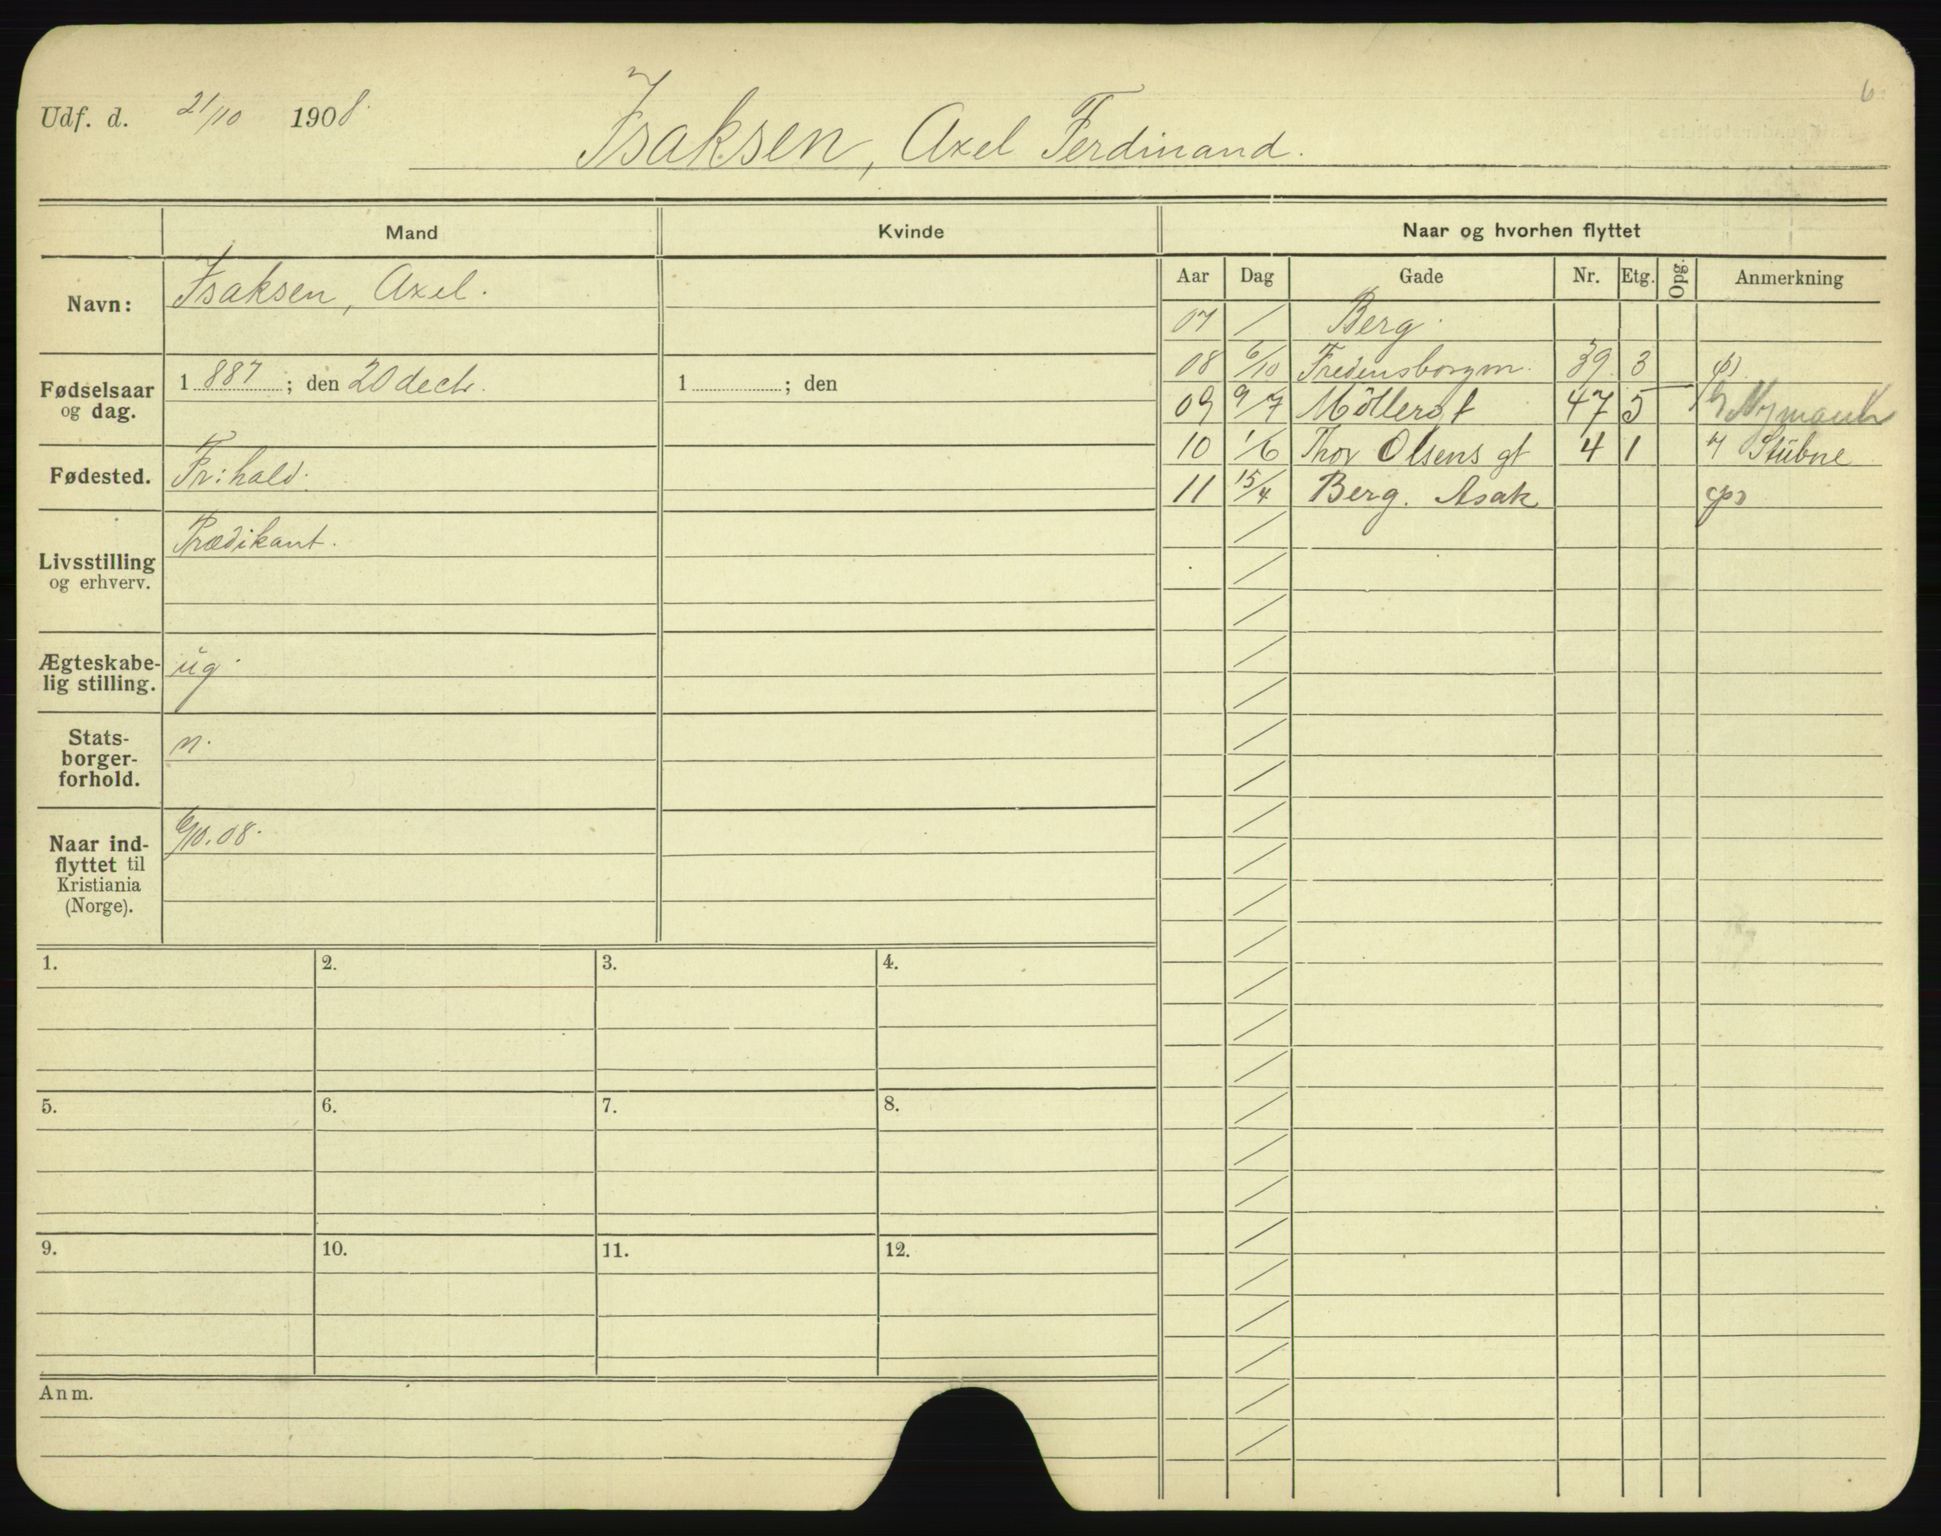 Udf. d. 21/10 1908.
Isaksen, Axel Ferdinand.
Mand Kvinde Naar og hvorhen flyttet
Aar Dag Gade Nr. Etg. Opg. Anmerkning
Navn: Isaksen, Axel.
Fødselsaar og dag. 1887; den 20 decbr. 1 ; den
Fødested. Fr:hald.
Livsstilling og erhverv. Prædikant.
Ægteskabelig stilling. ug.
Statsborgerforhold. n.
Naar indflyttet til Kristiania (Norge). 6/10.08.
07 / Berg.
08 6/10 Fredensborgvn. 39. 3
09 9/7 Möllergt 47 5
10 1/6 Thor Olsens gt 4 1 Stübne
11 15/4 Berg. Asak
1. 2. 3. 4.
5. 6. 7. 8.
9. 10. 11. 12.
Anm.